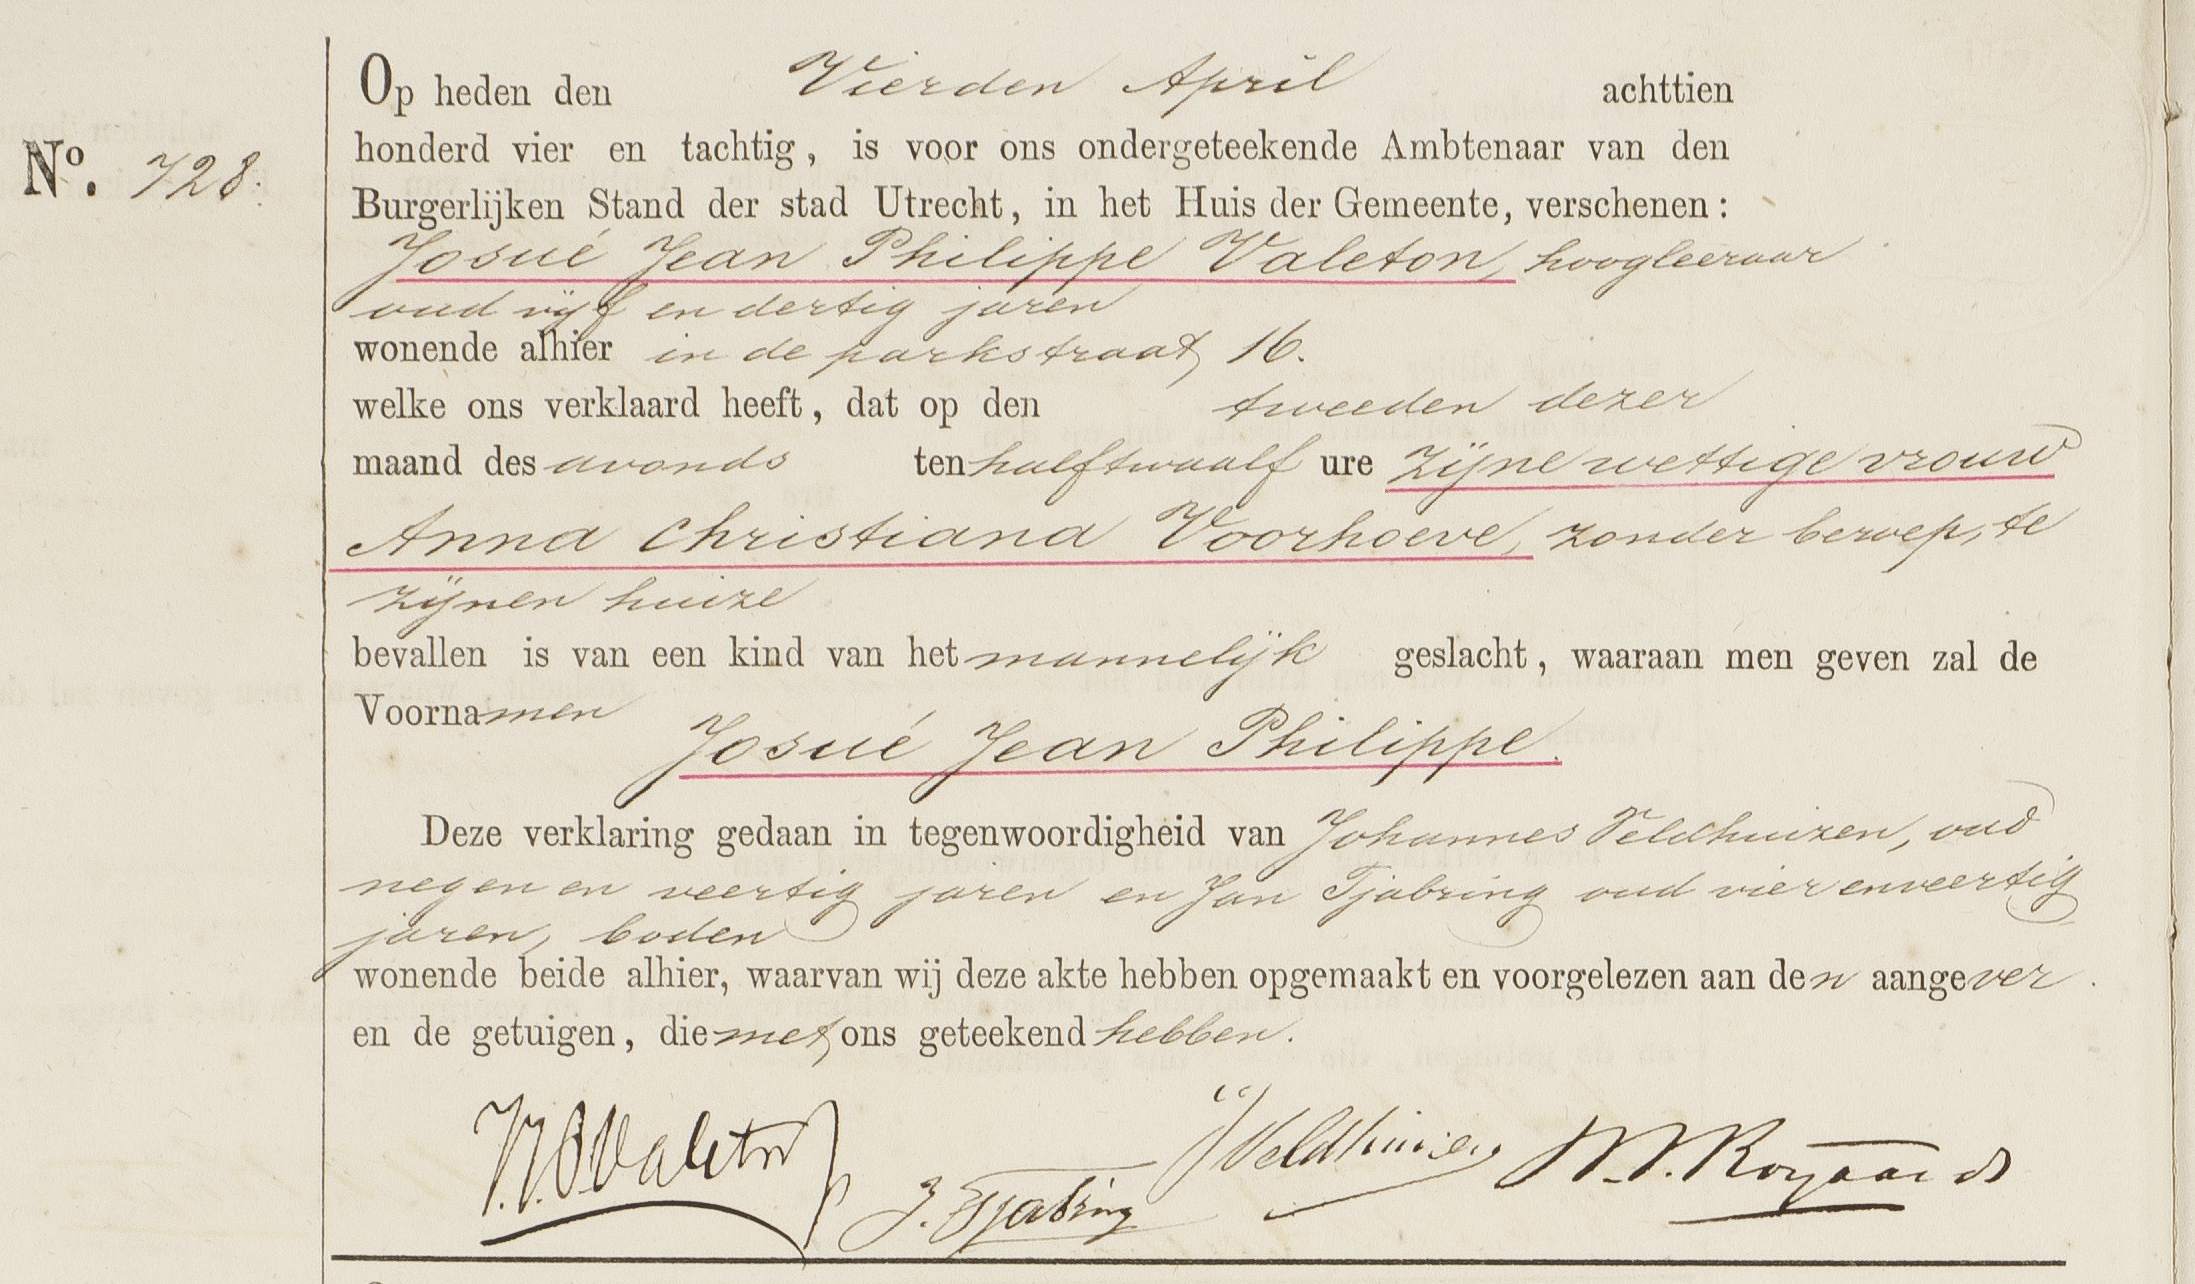 Op heden den Vierden April achttien
No. 728.
honderd vier en tachtig, is voor ons ondergeteekende Ambtenaar van den
Burgerlijken Stand der stad Utrecht, in het Huis der Gemeente, verschenen:
Josué Jean Philippe Valeton, hoogleeraar
oud vijf en dertig jaren
wonende alhier in de parkstraat 16.
welke ons verklaard heeft, dat op den tweeden dezer
maand des avonds ten half twaalf ure zijne wettige vrouw
Anna Christiana Voorhoeve, zonder beroep, te
zijnen huize
bevallen is van een kind van het mannelijk geslacht, waaraan men geven zal de
Voornamen
Josué Jean Philippe.
Deze verklaring gedaan in tegenwoordigheid van Johannes Veldhuizen, oud
negen en veertig jaren en Jan Tjabring oud vier en veertig
jaren, boden
wonende beide alhier, waarvan wij deze akte hebben opgemaakt en voorgelezen aan den aangever
en de getuigen, die met ons geteekend hebben.
J.J.P. Valeton J. Tjabring J Veldhuizen Royaards